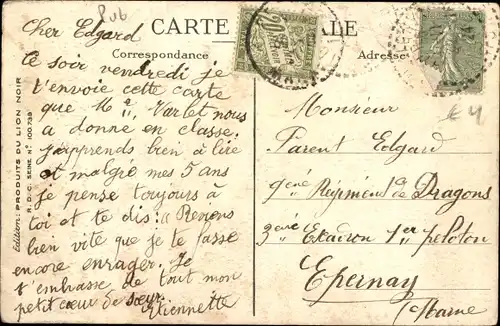 Pub
CARTE
Cher Edgard
Correspondance
Adresse
ce soir vendredi je
t'envoie cette carte
que Me Varlet nous
a donne en classe.
j'apprends bien à lire
et malgié mes 5 ans
je pense toujours à
toi et te dis: "Reviens
bien vite que je te fasse
encore enrager. Je
t'embrasse de tout mon
petit cœur de sœur
Etiennette
Edition: PRODUITS DU LION NOIR
R.D.C. SEINE No 100.739
20
Monsieur
Parent Edgard
9eme Régiment de Dragons
3eme Escadron 1er peloton
Epernay
(Marne
€4